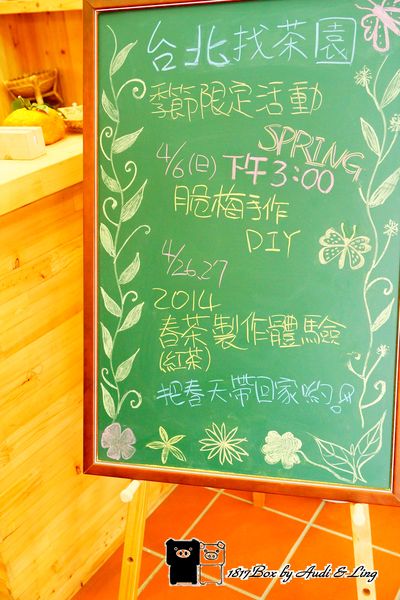 台北找茶園
季節限定活動
SPRING
4/6(日)下午3:00
脆梅手作
DIY
4/26.27
2014
春茶製作體驗
(紅茶)
把春天帶回家喲!
1817Box by Audi & Ling